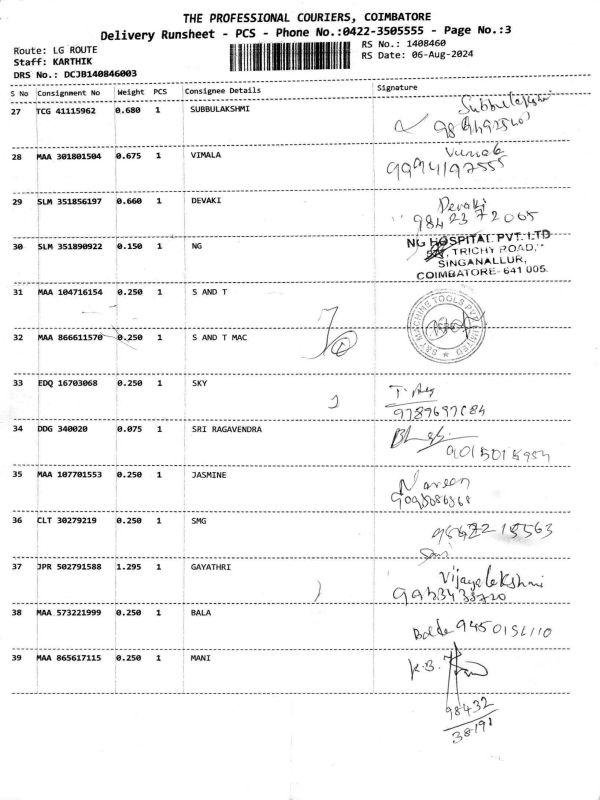 THE PROFESSIONAL COURIERS, COIMBATORE
Delivery Runsheet - PCS - Phone No.:0422-3505555 - Page No.:3
Route: LG ROUTE RS No.: 1408460
Staff: KARTHIK RS Date: 06-Aug-2024
DRS No.: DCJB140846003
S No Consignment No Weight PCS Consignee Details Signature
27 TCG 41115962 0.680 1 SUBBULAKSHMI Subbulakshmi
28 MAA 301801504 0.675 1 VIMALA Vimala
9994197555
29 SLM 351856197 0.660 1 DEVAKI Devaki
9842372065
30 SLM 351890922 0.150 1 NG NG HOSPITAL PVT. LTD
TRICHY ROAD,
SINGANALLUR,
COIMBATORE- 641 005.
31 MAA 104716154 0.250 1 S AND T
S&T MACHINE TOOLS PVT. LIMITED
32 MAA 866611570 0.250 1 S AND T MAC
33 EDQ 16703068 0.250 1 SKY
9789697084
34 DDG 340020 0.075 1 SRI RAGAVENDRA
9015015954
35 MAA 107701553 0.250 1 JASMINE Naveen
36 CLT 30279219 0.250 1 SMG
37 JPR 502791588 1.295 1 GAYATHRI Vijayalakshmi
38 MAA 573221999 0.250 1 BALA
39 MAA 865617115 0.250 1 MANI K.B.
98432
38191